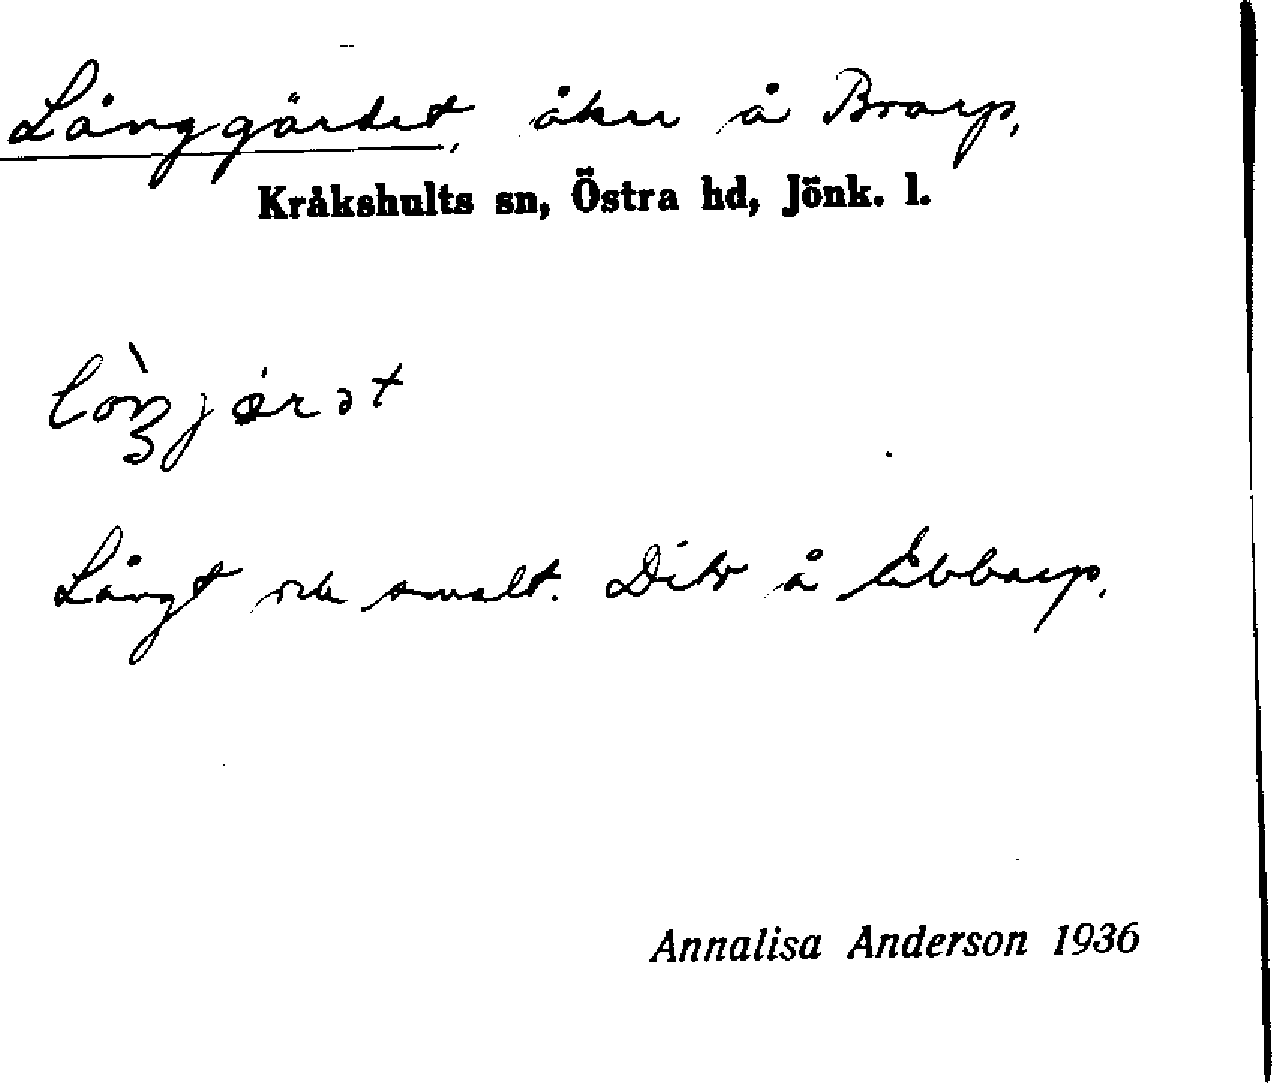 Långgärdet, åker å Brarp,
Kråkshults sn, Östra hd, Jönk. l.
Långt och smalt. Dito å Ebbarp.
Annalisa Anderson 1936